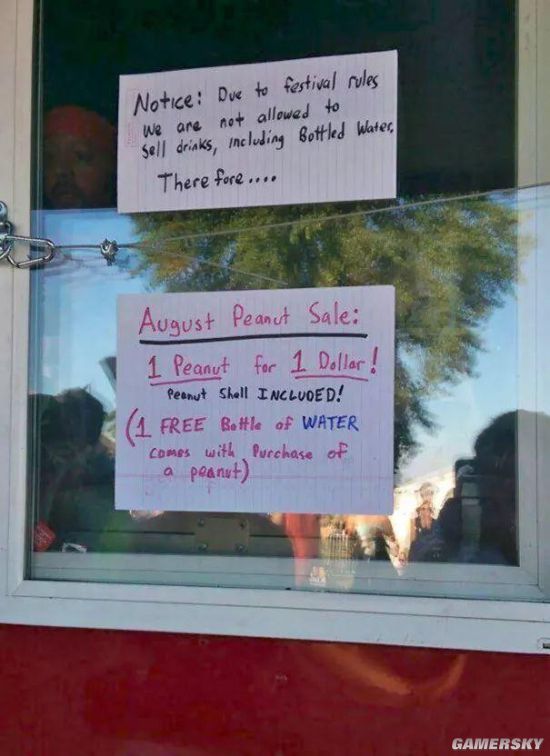 Notice: Due to festival rules
we are not allowed to
sell drinks, including Bottled Water,
Therefore....
August Peanut Sale:
1 Peanut for 1 Dollar!
Peanut Shell INCLUDED!
(1 FREE Bottle of WATER
comes with Purchase of
a peanut)
GAMERSKY